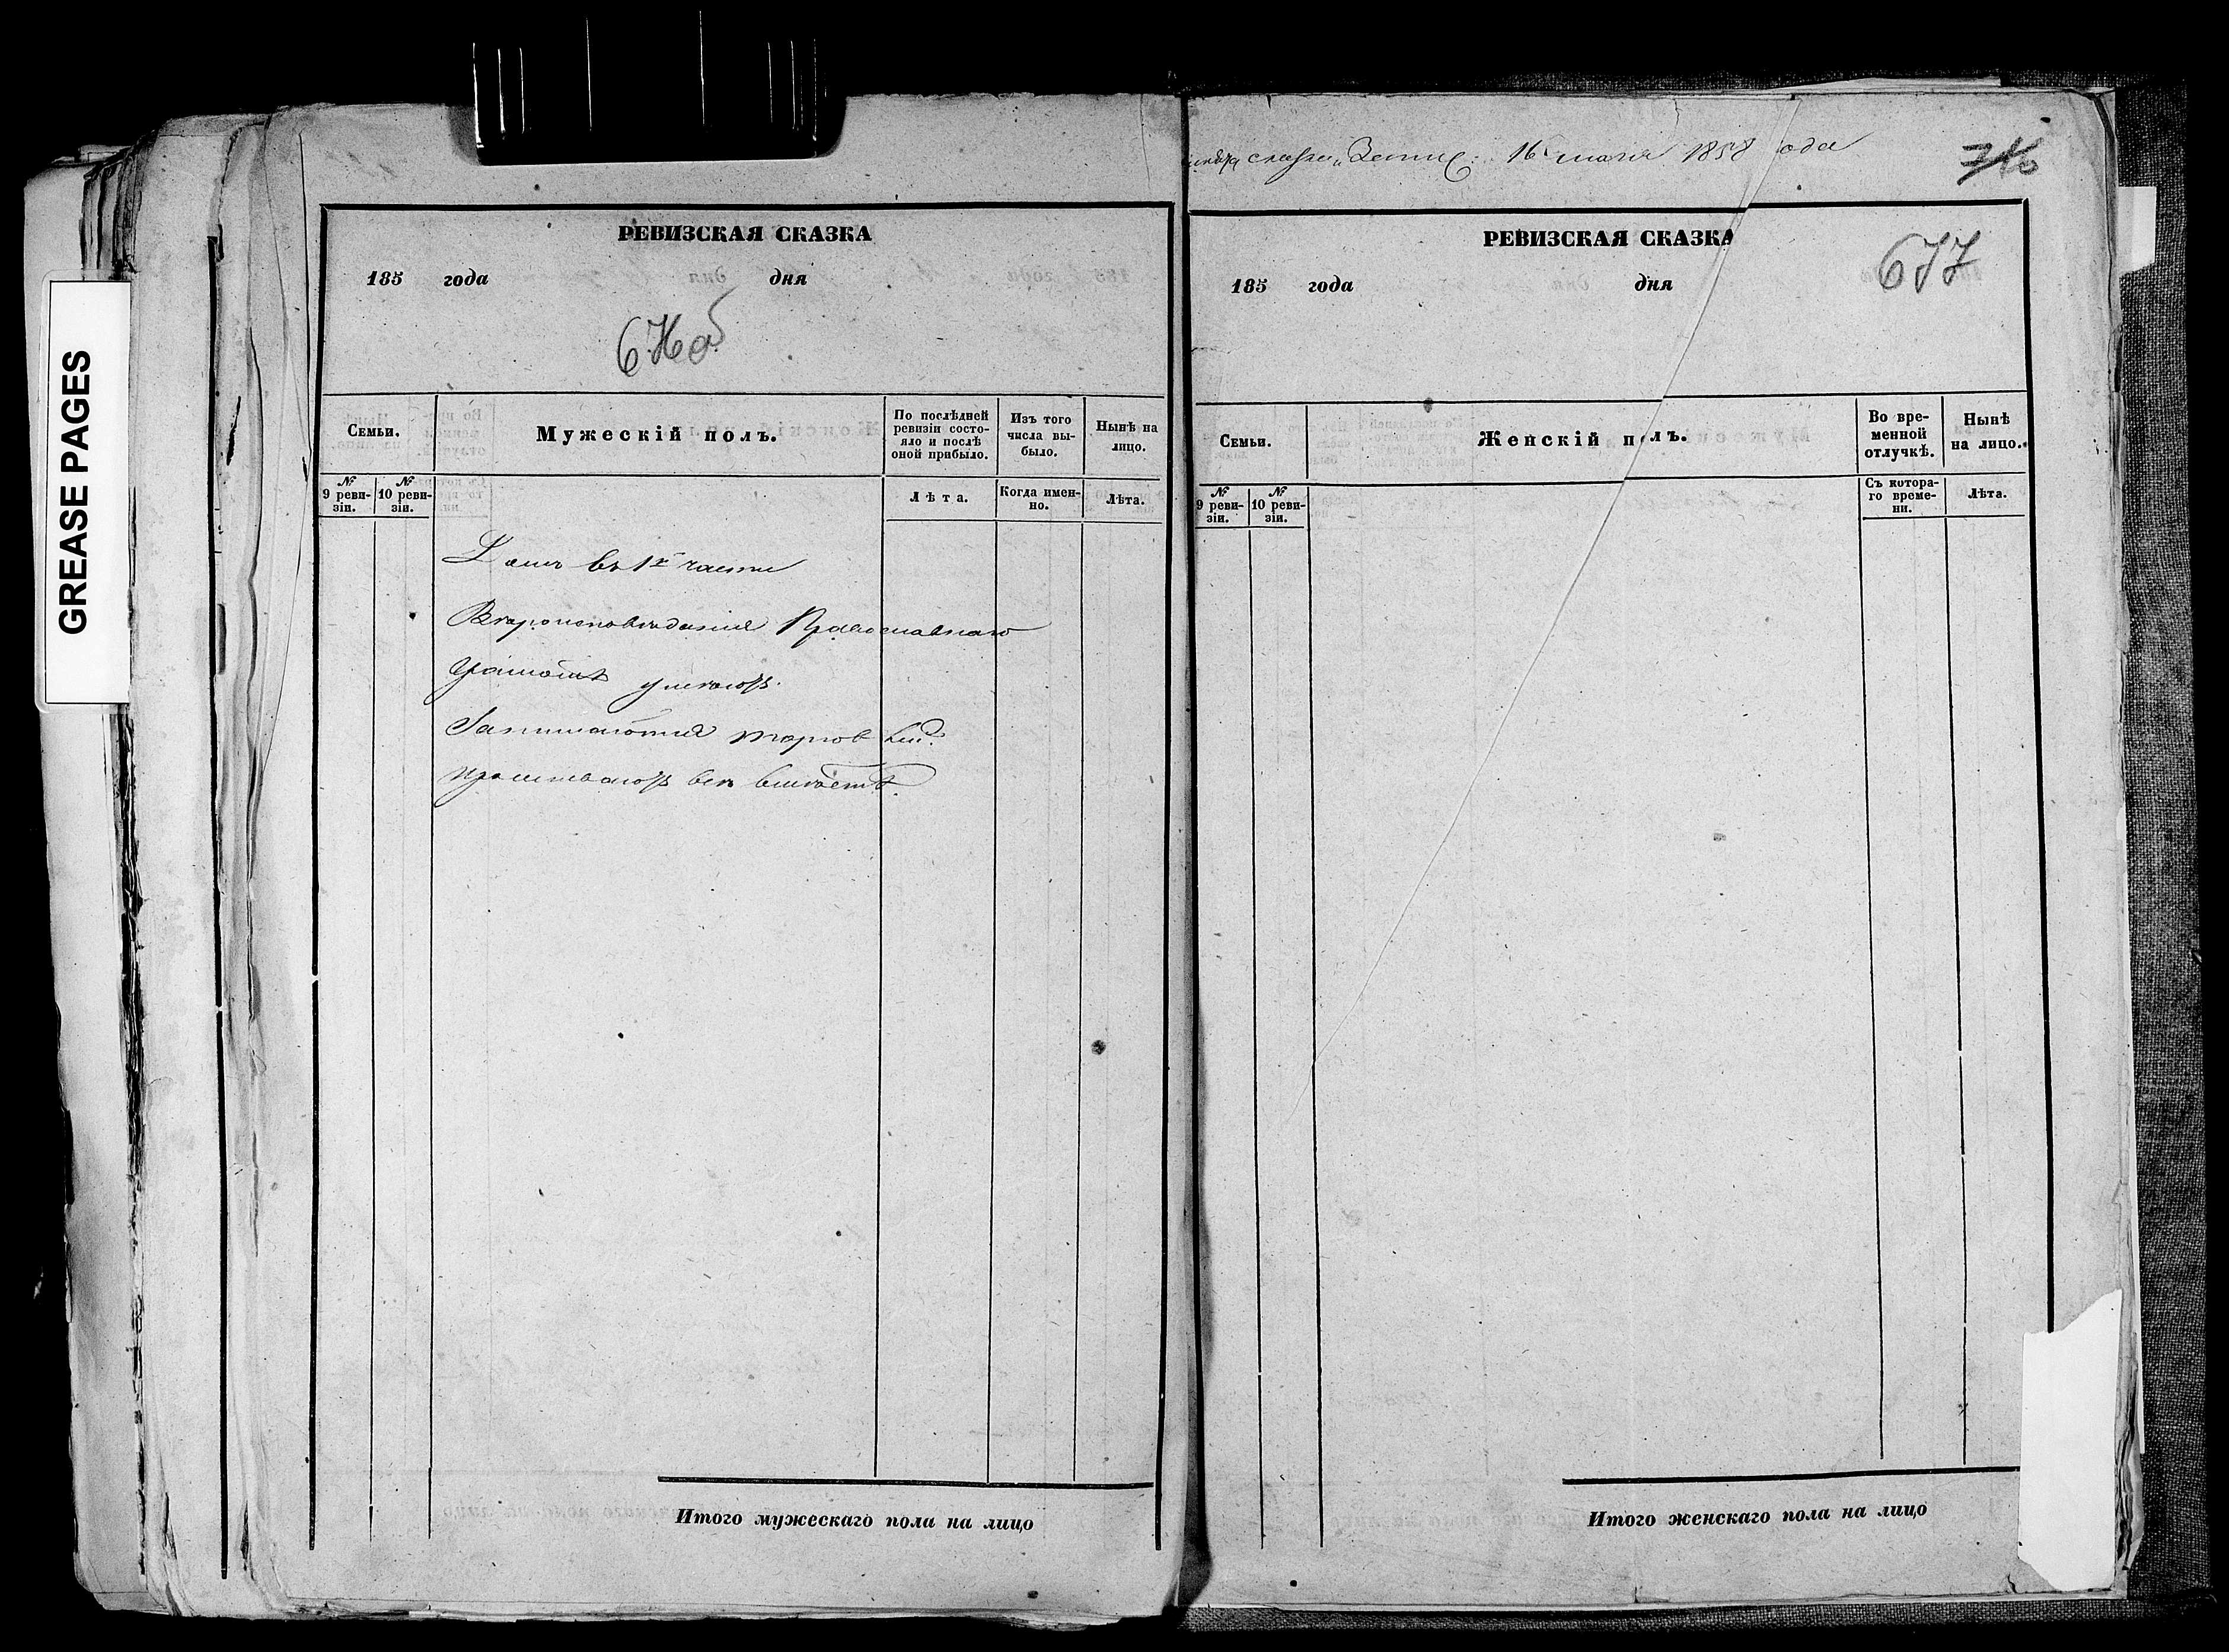 GREASE PAGES
РЕВИЗСКАЯ СКАЗКА
185 года дня
Семьи.
Мужескій полъ.
По послѣдней
ревизіи состо-
яло и послѣ
оной прибыло.
Изъ того
числа вы-
было.
Нынѣ на
лицо.
№
9 реви-
зіи.
№
10 реви-
зіи.
Лѣта.
Когда имен-
но.
Лѣта.
Домъ въ 1й части
Вѣроисповѣданія Православнаго
Грамотѣ умѣютъ.
Занимаются торговлей.
проживаютъ всѣ вмѣстѣ.
Итого мужескаго пола на лицо
сказки 16 мая 1858 года
716
РЕВИЗСКАЯ СКАЗКА
677
185 года дня
Семьи.
Женскій полъ.
Во вре-
менной
отлучкѣ.
Нынѣ
на лицо.
№
9 реви-
зіи.
№
10 реви-
зіи.
Съ котора-
го време-
ни.
Лѣта.
Итого женскаго пола на лицо